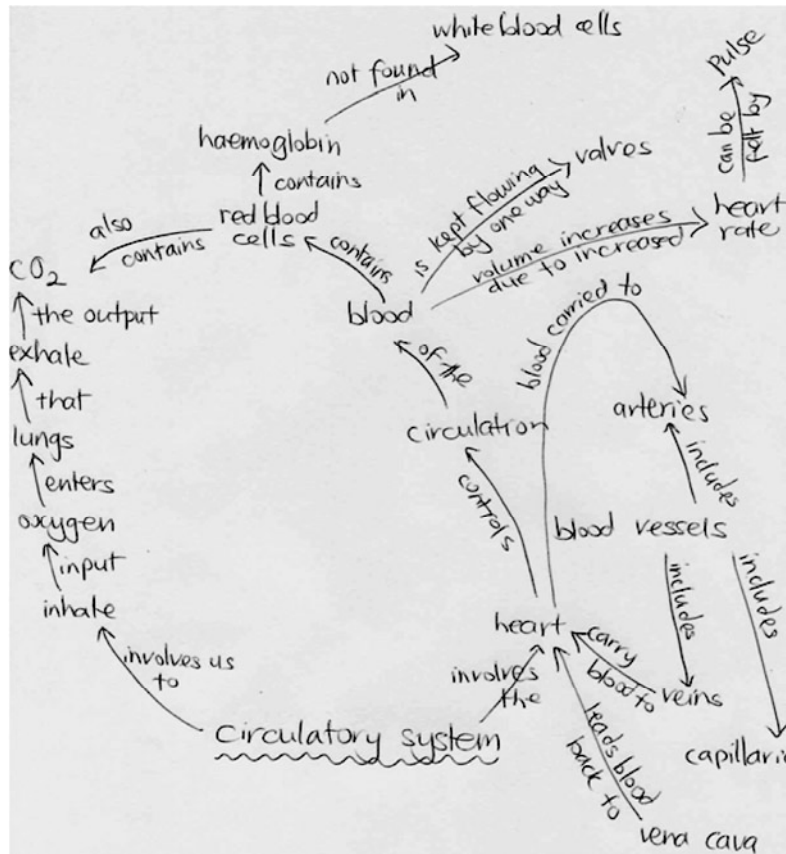 white blood cells
not found
in
haemoglobin
contains
red blood
cells
also
contains
CO2
the output
exhale
that
lungs
enters
oxygen
input
inhale
involves us
to
circulatory system
involves
the
heart
controls
circulation
of the
blood
contains
is kept flowing
by one way
valves
volume increases
due to increased
heart
rate
can be
felt by
Pulse
blood carried to
arteries
includes
blood vessels
includes
includes
carry
blood to
veins
capillarie
leads blood
back to
vena cava